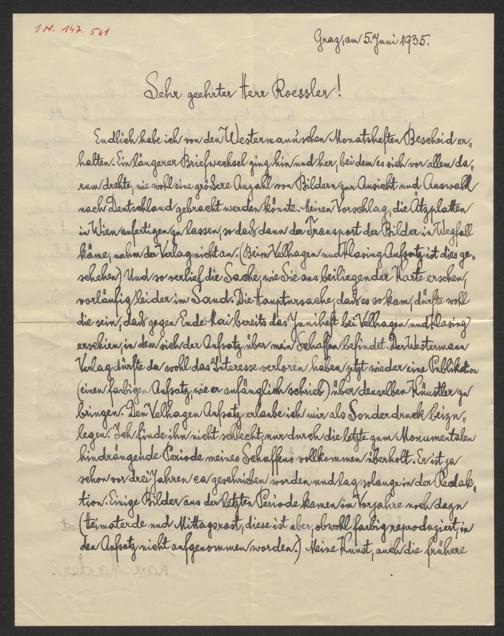 I.N. 147.541
Graz, am 5. Juni 1935.
Sehr geehrter Herr Roessler!
Endlich habe ich von den Westermann'schen Monatsheften Bescheid er-
halten. Ein längerer Briefwechsel ging hin und her, bei dem es sich vor allem da-
rum drehte, wie wohl eine größere Anzahl von Bildern zur Ansicht und Auswahl
nach Deutschland gebracht werden könnte. Meinen Vorschlag, die Atzplatten
in Wien anfertigen zu lassen, so daß dann der Transport der Bilder in Wegfall
käme, nahm der Verlag nicht an. (Beim Velhagen und Klasing Aufsatz ist dies ge-
schehen) Und so verlief die Sache, wie Sie aus beiliegender Karte ersehen,
vorläufig leider im Sand. Die Hauptursache, daß es so kam, dürfte wohl
die sein, daß gegen Ende Mai bereits das Juniheft bei Velhagen und Klasing
erschien, in dem sich der Aufsatz über mein Schaffen befindet. Der Westermann
Verlag dürfte da wohl das Interesse verloren haben, jetzt wieder eine Publikation
(einen farbigen Aufsatz, wie er anfänglich schrieb) über denselben Künstler zu
bringen. Den Velhagen Aufsatz erlaube ich mir als Sonderdruck beizu-
legen. Ich finde ihn nicht schlecht, nur durch die letzte zum Monumentalen
hindrängende Periode meines Schaffens vollkommen überholt. Er ist ja
schon vor drei Jahren ca geschrieben worden und lag solange in der Redak-
tion. Einige Bilder aus der letzten Periode kamen im Vorjahre noch dazu
(Heimaterde und Mittagsrast, diese ist aber, obwohl farbig reproduziert, in
den Aufsatz nicht aufgenommen worden.) Meine Kunst, auch die frühere